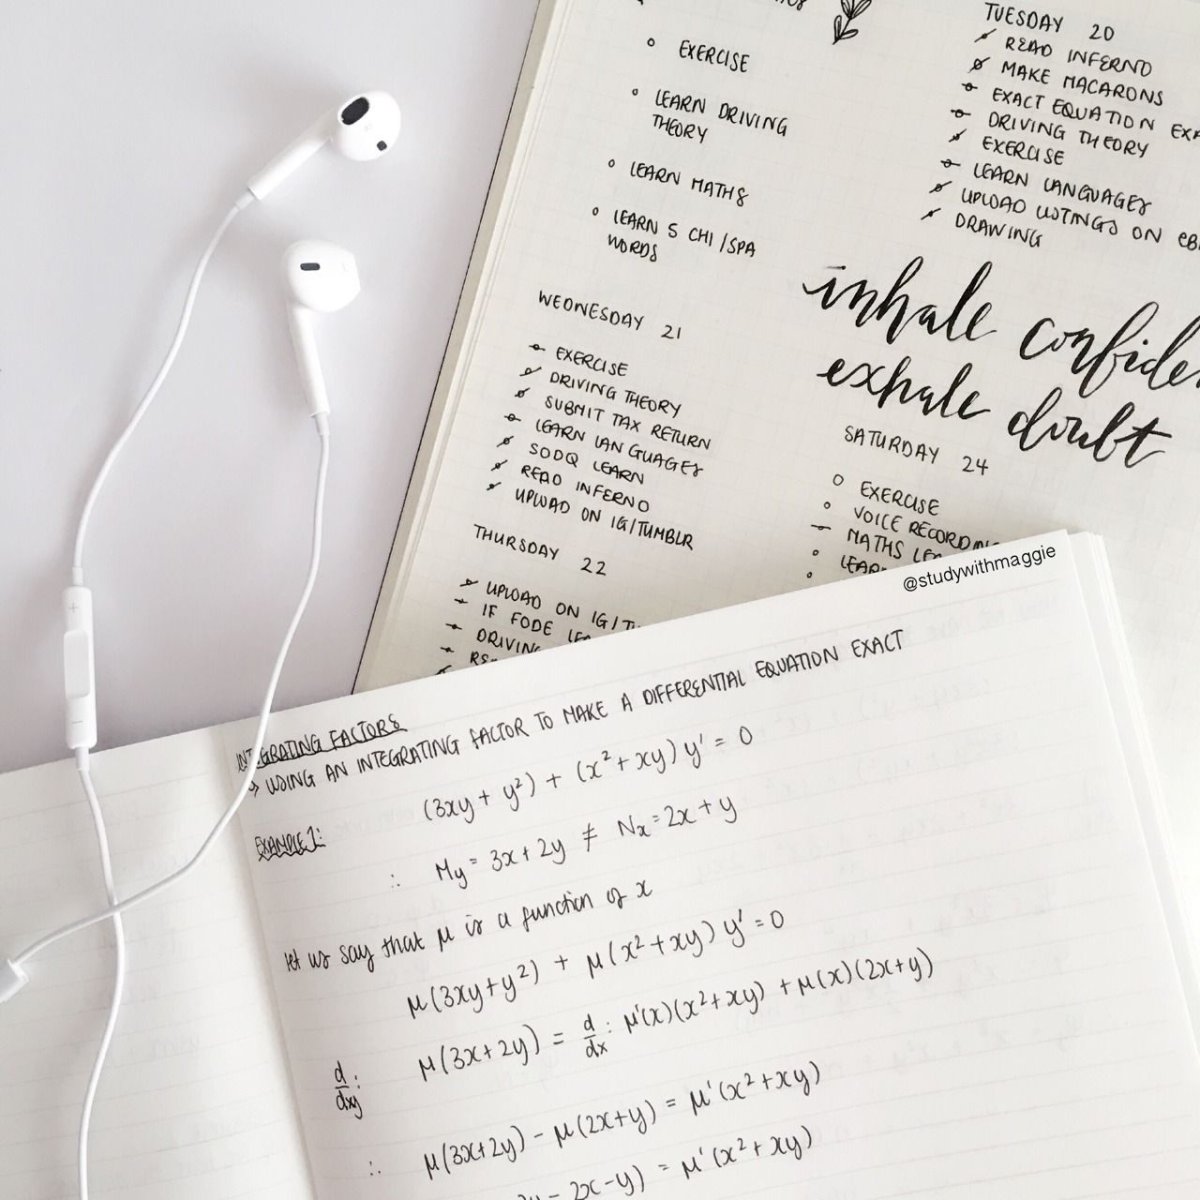 EXERCISE
LEARN DRIVING
THEORY
LEARN MATHS
LEARN 5 CHI/SPA
WORDS
WEDNESDAY 21
EXERCISE
DRIVING THEORY
SUBMIT TAX RETURN
LEARN LANGUAGES
SODQ LEARN
READ INFERNO
UPLOAD ON IG/TUMBLR
THURSDAY 22
UPLOAD ON IG/
IF FODE
TUESDAY 20
READ INFERNO
MAKE MACARONS
EXACT EQUATION
DRIVING THEORY
EXERCISE
LEARN LANGUAGES
UPLOAD LISTINGS ON
DRAWING
inhale
exhale doubt
SATURDAY 24
EXERCISE
VOICE
MATHS
@studywithmaggie
INTEGRATING FACTORS
→ USING AN INTEGRATING FACTOR TO MAKE A DIFFERENTIAL EQUATION EXACT
EXAMPLE 1: (3xy + y²) + (x² + xy) y' = 0
∴ My = 3x + 2y ≠ Nx = 2x + y
let us say that μ is a function of x
μ(3xy + y²) + μ(x² + xy) y' = 0
d/dy: μ(3x + 2y) = d/dx: μ'(x)(x² + xy) + μ(x)(2x + y)
∴ μ(3x + 2y) - μ(2x + y) = μ'(x² + xy)
- 2x - y) = μ'(x² + xy)